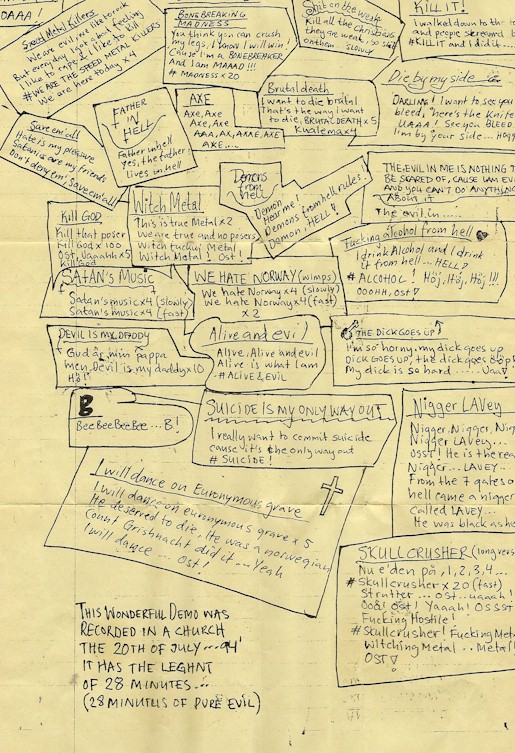 OAAA!
Speed Metal Killers
We are evil we like to rock
But everyday you a bad feeling
I like to rape I like to kill
#WE ARE THE SPEED METAL KILLERS
We are here today x4
BONEBREAKING
MADNESS
You think you can crush
my legs, I know I will win!
Cause I'm a BONEBREAKER
And I am MAAAD !!!
# MADNESS x20
Spit on the weak
Kill all the Christians
they are weak, so spit
on them slowly
KILL IT!
I walked down to the
and people screamed
#KILL IT and I did it...
Save em'all
Hate is my pleasure
Satan is are my friends
Don't deny em', save em'all
FATHER
IN
HELL
Father in hell
yes, the father
lives on hell
AXE
Axe, Axe
Axe, Axe
AAA, AX, AXAE, AXE
AXE...
Brutal death
I want to die brutal
That's the way I want
to die, BRUTAL DEATH x5
Kualema x4
Die by my side
DARLING! I want to see you
bleed, "here's the Knife
UAAA! See you BLEED
I'm by your side...
Demons
from
hell
Demon
Hear me!
Demons from hell rules.
Demon, HELL!
THE EVIL IN ME IS NOTHING T
BE SCARED OF, CAUSE I AM EVIL
AND YOU CAN'T DO ANYTHING
ABOUT IT
The evil in......
Kill GOD
Kill that poser
Kill God x 100
Ost, Uaaahh x5
Kill God
Witch Metal
This is true Metal x2
We are true and no posers
Witch fuckin' Metal
Witch Metal! Ost!
Fucking alcohol from hell
I drink Alcohol and I drink
it from hell... HELL
# ALCOHOL! Höj, Höj, Höj !!!
OOOHH, OST!
SATAN'S MUSIC
Satan's music x4 (slowly)
Satan's music x4 (fast)
WE HATE NORWAY (wimps)
We hate Norway x4 (slowly)
We hate Norway x4 (fast)
x 2
DEVIL IS MY DADDY
Gud är min pappa
men Devil is my daddy x10
Hö!
Alive and evil
Alive, Alive and evil
Alive is what I am
# ALIVE & EVIL
THE DICK GOES UP
I'm so horny, my dick goes up
DICK GOES UP, the dick goes up
My dick is so hard ...... Uaa!
B
BEE BEE BEE BEE... B!
SUICIDE IS MY ONLY WAY OUT
I really want to commit suicide
cause it's the only way out
# SUICIDE!
Nigger LAVey
Nigger, Nigger, Nig
Nigger LAVey...
Osst! He is the rea
Nigger... LAVEY...
From the 7 gates o
hell came a nigger
called LAVEY...
He was black as ho
I will dance on Euronymous grave
I will dance on euronymous grave x 5
He deserved to die, He was a norwegian
Count Grishnackh did it... Yeah
I will dance ... Ost!
SKULLCRUSHER (long vers
Nu e'den på, 1, 2, 3, 4...
# Skullcrusher x 20 (fast)
Strutter ... Ost... uaaah!
Ooa! Ost! Yaaah! OSSST
Fucking Hostile!
# Skullcrusher! Fucking Met
Witching Metal .. Metal!
OST
THIS WONDERFUL DEMO WAS
RECORDED IN A CHURCH
THE 20TH OF JULY ... -94'
IT HAS THE LEGHNT
OF 28 MINUTES...
(28 MINUTES OF PURE EVIL)